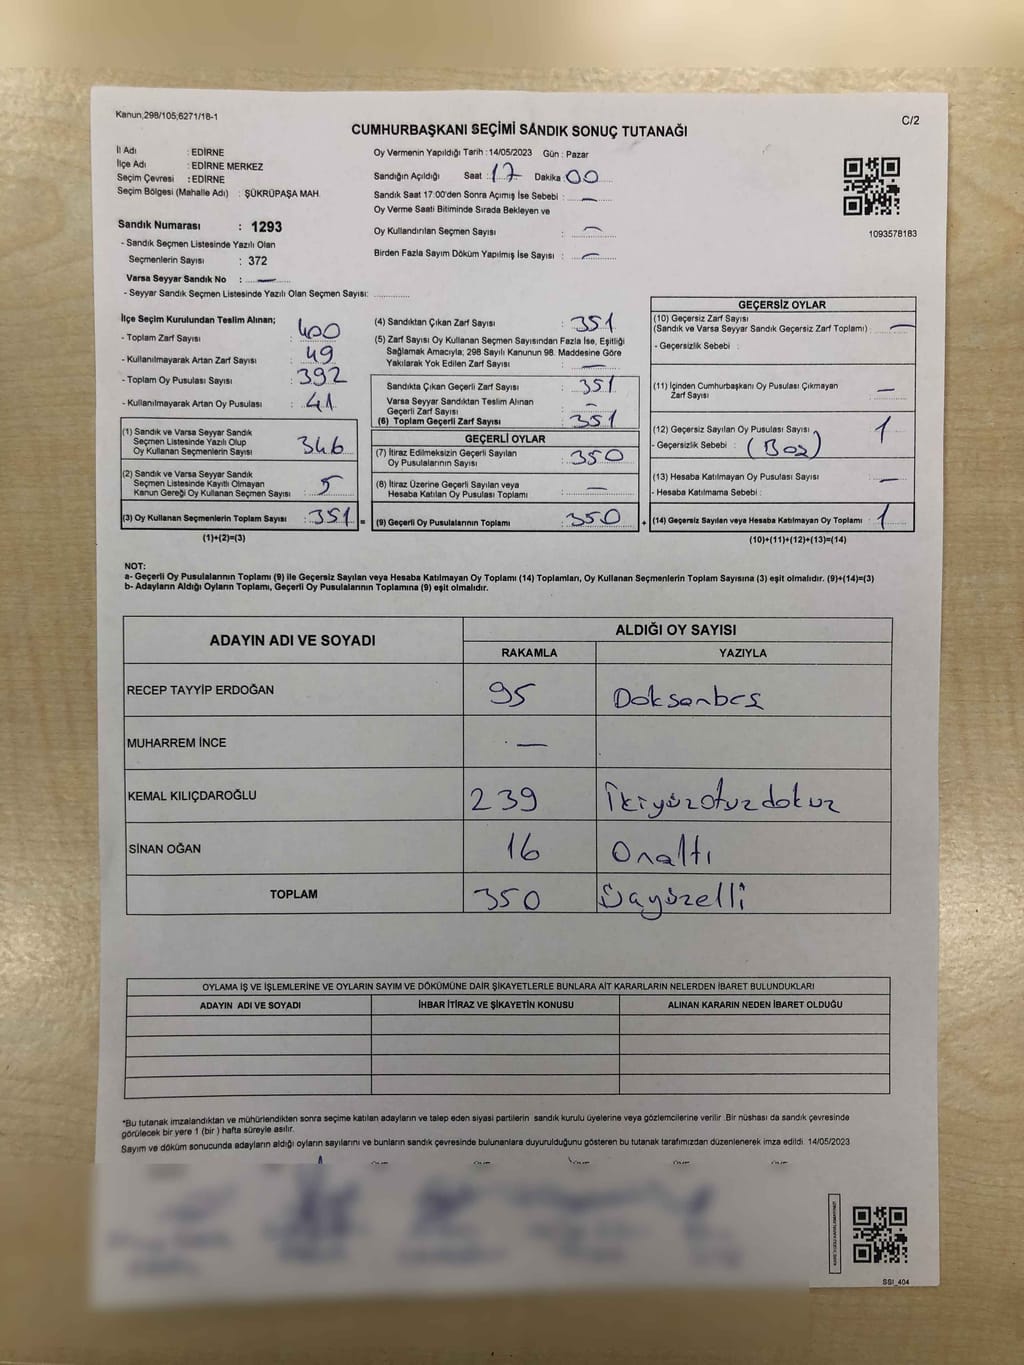 Kanun,298/105,6271/18-1
C/2
CUMHURBAŞKANI SEÇİMİ SANDIK SONUÇ TUTANAĞI
İl Adı : EDİRNE
İlçe Adı : EDİRNE MERKEZ
Seçim Çevresi : EDİRNE
Seçim Bölgesi (Mahalle Adı) : ŞÜKRÜPAŞA MAH.
Sandık Numarası : 1293
- Sandık Seçmen Listesinde Yazılı Olan
Seçmenlerin Sayısı : 372
Varsa Seyyar Sandık No : —
- Seyyar Sandık Seçmen Listesinde Yazılı Olan Seçmen Sayısı: ............
Oy Vermenin Yapıldığı Tarih : 14/05/2023 Gün : Pazar
Sandığın Açıldığı Saat : 17 Dakika 00
Sandık Saat 17:00'den Sonra Açılmış İse Sebebi : —
Oy Verme Saati Bitiminde Sırada Bekleyen ve
Oy Kullandırılan Seçmen Sayısı : —
Birden Fazla Sayım Döküm Yapılmış İse Sayısı : —
1093578183
İlçe Seçim Kurulundan Teslim Alınan;
- Toplam Zarf Sayısı : 400
- Kullanılmayarak Artan Zarf Sayısı : 49
- Toplam Oy Pusulası Sayısı : 392
- Kullanılmayarak Artan Oy Pusulası : 41
(1) Sandık ve Varsa Seyyar Sandık
Seçmen Listesinde Yazılı Olup
Oy Kullanan Seçmenlerin Sayısı 346
(2) Sandık ve Varsa Seyyar Sandık
Seçmen Listesinde Kayıtlı Olmayan
Kanun Gereği Oy Kullanan Seçmen Sayısı : 5
(3) Oy Kullanan Seçmenlerin Toplam Sayısı : 351 =
(1)+(2)=(3)
(4) Sandıktan Çıkan Zarf Sayısı : 351
(5) Zarf Sayısı Oy Kullanan Seçmen Sayısından Fazla İse, Eşitliği
Sağlamak Amacıyla; 298 Sayılı Kanunun 98. Maddesine Göre
Yakılarak Yok Edilen Zarf Sayısı : —
Sandıkta Çıkan Geçerli Zarf Sayısı : 351
Varsa Seyyar Sandıktan Teslim Alınan
Geçerli Zarf Sayısı : —
(6) Toplam Geçerli Zarf Sayısı : 351
GEÇERLİ OYLAR
(7) İtiraz Edilmeksizin Geçerli Sayılan
Oy Pusulalarının Sayısı : 350
(8) İtiraz Üzerine Geçerli Sayılan veya
Hesaba Katılan Oy Pusulası Toplamı : —
(9) Geçerli Oy Pusulalarının Toplamı : 350 +
GEÇERSİZ OYLAR
(10) Geçersiz Zarf Sayısı
(Sandık ve Varsa Seyyar Sandık Geçersiz Zarf Toplamı) : —
- Geçersizlik Sebebi :
(11) İçinden Cumhurbaşkanı Oy Pusulası Çıkmayan
Zarf Sayısı : —
(12) Geçersiz Sayılan Oy Pusulası Sayısı : 1
- Geçersizlik Sebebi : (Boş)
(13) Hesaba Katılmayan Oy Pusulası Sayısı : —
- Hesaba Katılmama Sebebi :
(14) Geçersiz Sayılan veya Hesaba Katılmayan Oy Toplamı : 1
(10)+(11)+(12)+(13)=(14)
NOT:
a- Geçerli Oy Pusulalarının Toplamı (9) ile Geçersiz Sayılan veya Hesaba Katılmayan Oy Toplamı (14) Toplamları, Oy Kullanan Seçmenlerin Toplam Sayısına (3) eşit olmalıdır. (9)+(14)=(3)
b- Adayların Aldığı Oyların Toplamı, Geçerli Oy Pusulalarının Toplamına (9) eşit olmalıdır.
ADAYIN ADI VE SOYADI
ALDIĞI OY SAYISI
RAKAMLA YAZIYLA
RECEP TAYYİP ERDOĞAN 95 Doksanbeş
MUHARREM İNCE —
KEMAL KILIÇDAROĞLU 239 İkiyüzotuzdokuz
SİNAN OĞAN 16 Onaltı
TOPLAM 350 Üçyüzelli
OYLAMA İŞ VE İŞLEMLERİNE VE OYLARIN SAYIM VE DÖKÜMÜNE DAİR ŞİKAYETLERLE BUNLARA AİT KARARLARIN NELERDEN İBARET BULUNDUKLARI
ADAYIN ADI VE SOYADI İHBAR İTİRAZ VE ŞİKAYETİN KONUSU ALINAN KARARIN NEDEN İBARET OLDUĞU
*Bu tutanak imzalandıktan ve mühürlendikten sonra seçime katılan adayların ve talep eden siyasi partilerin sandık kurulu üyelerine veya gözlemcilerine verilir .Bir nüshası da sandık çevresinde
görülecek bir yere 1 (bir ) hafta süreyle asılır.
Sayım ve döküm sonucunda adayların aldığı oyların sayılarını ve bunların sandık çevresinde bulunanlara duyurulduğunu gösteren bu tutanak tarafımızdan düzenlenerek imza edildi. 14/05/2023
SSI_404